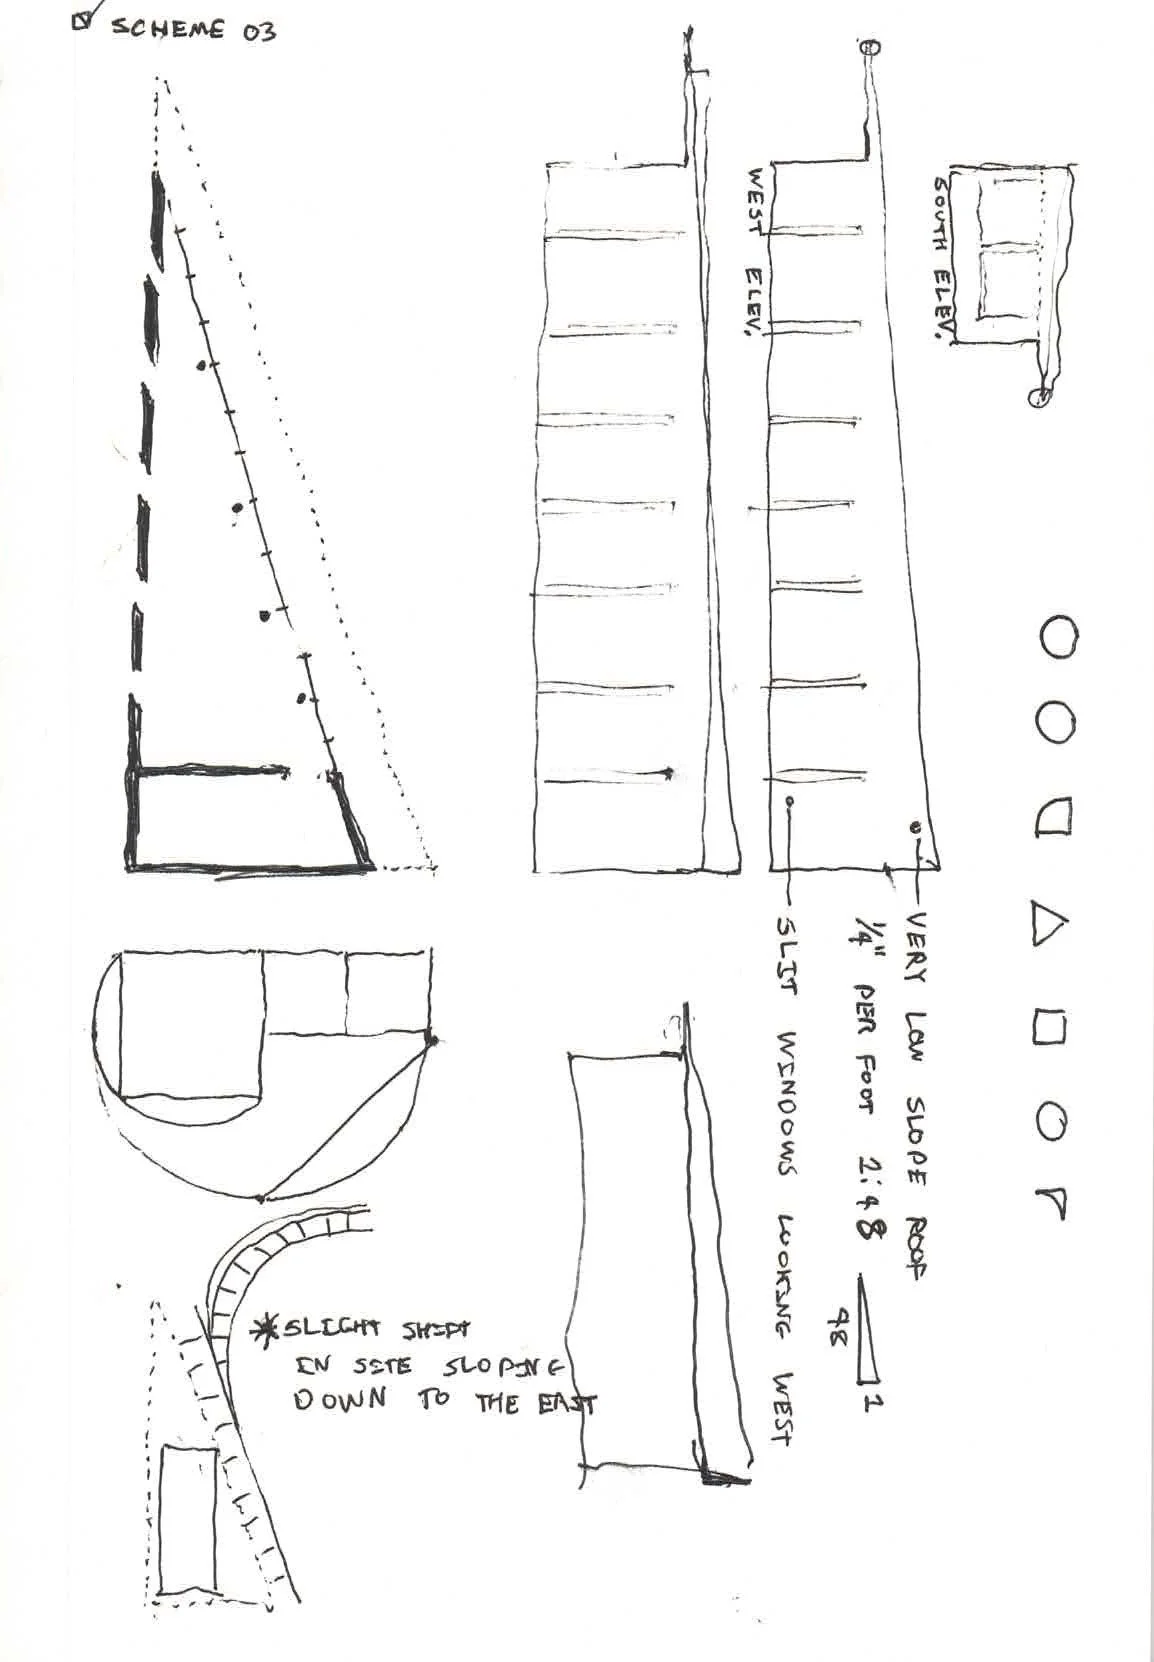 SCHEME 03
WEST ELEV.
SOUTH ELEV.
VERY LOW SLOPE ROOF
1/4" PER FOOT 2:48
48
1
SLIT WINDOWS LOOKING WEST
*SLIGHT SHIFT
IN SITE SLOPING
DOWN TO THE EAST